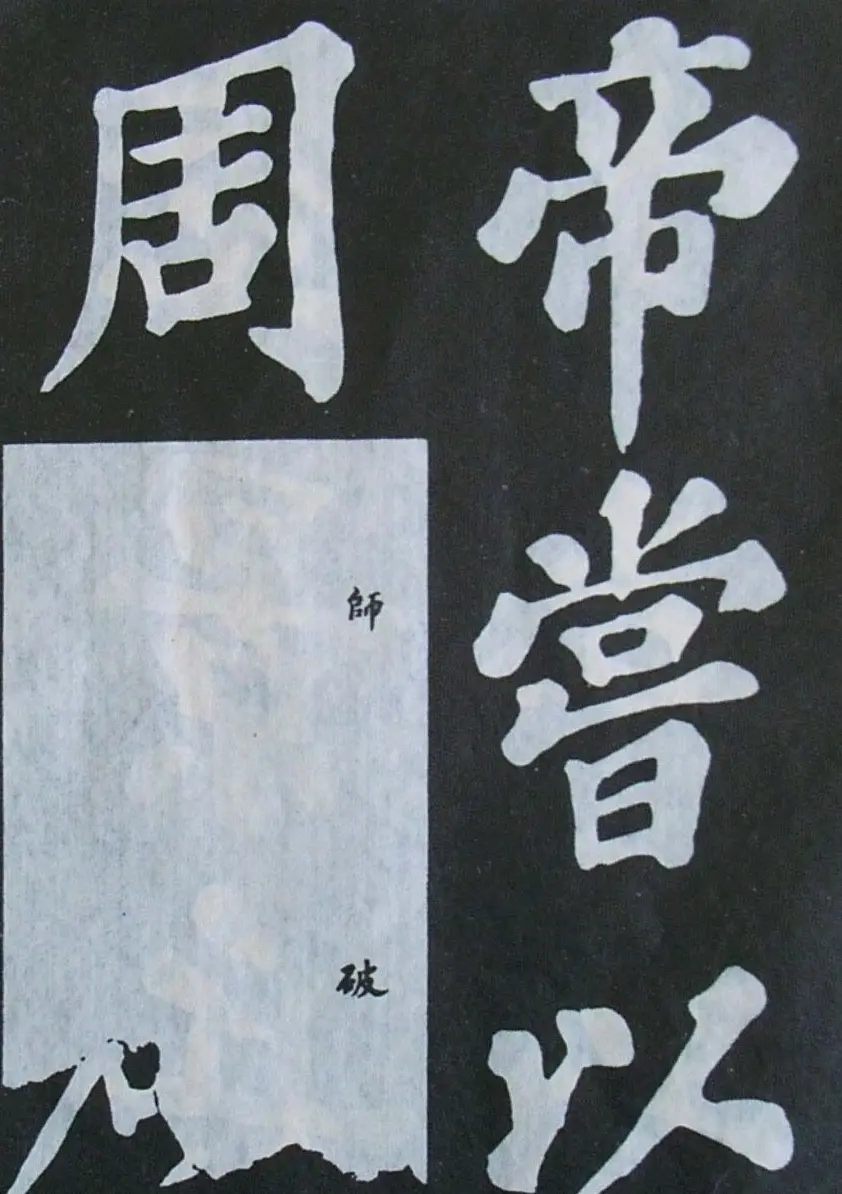 帝嘗以
周師破